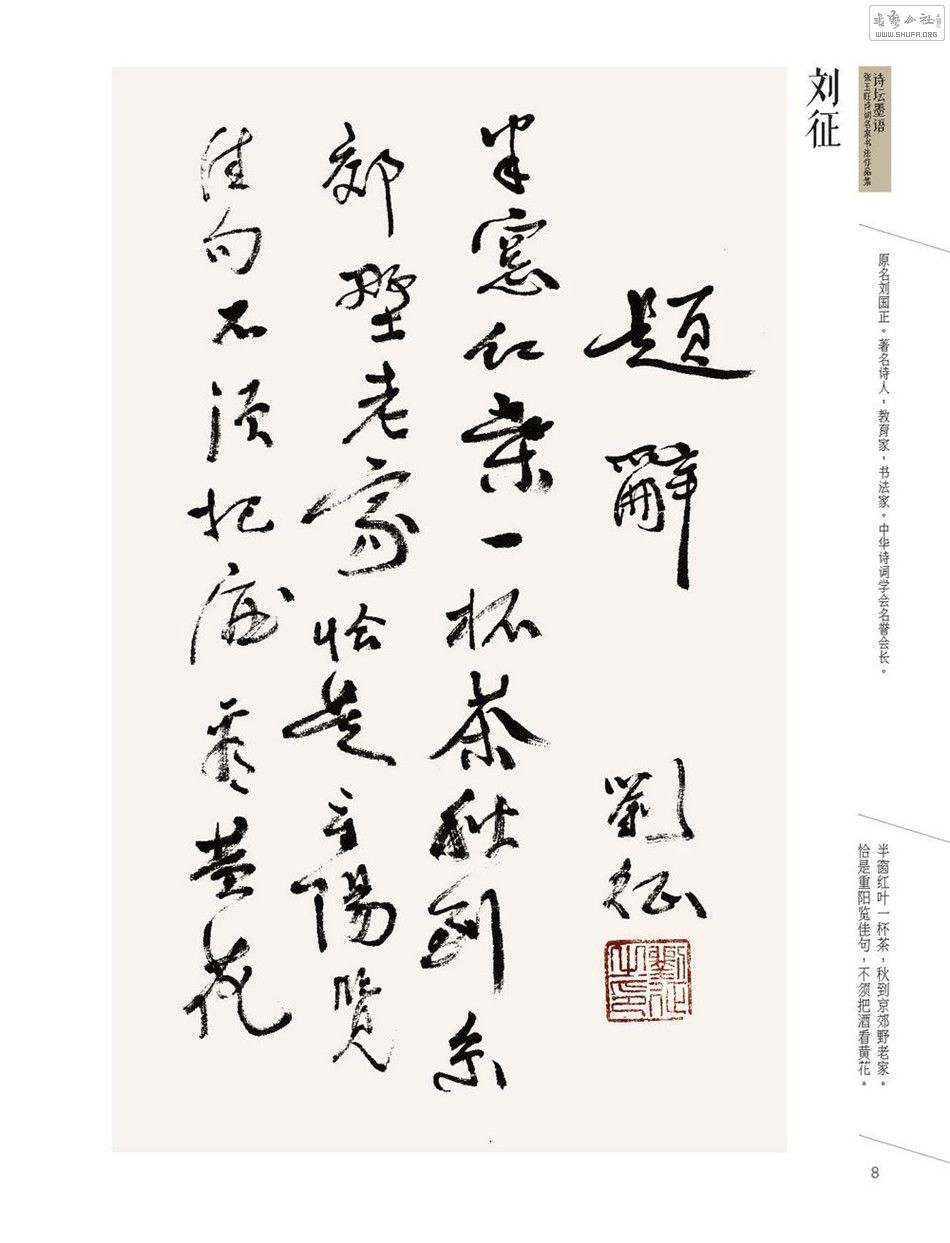 書藝公社
WWW.SHUFA.ORG
诗坛墨语
诗词名家书法作品集
刘征
原名刘国正。著名诗人，教育家，书法家。中华诗词学会名誉会长。
題辭
劉征
劉征之印
半窓红葉一杯茶秋到京
郊墅老家恰是重陽覽
佳句不须把酒看黄花
半窗红叶一杯茶，秋到京郊野老家。
恰是重阳览佳句，不须把酒看黄花。
8